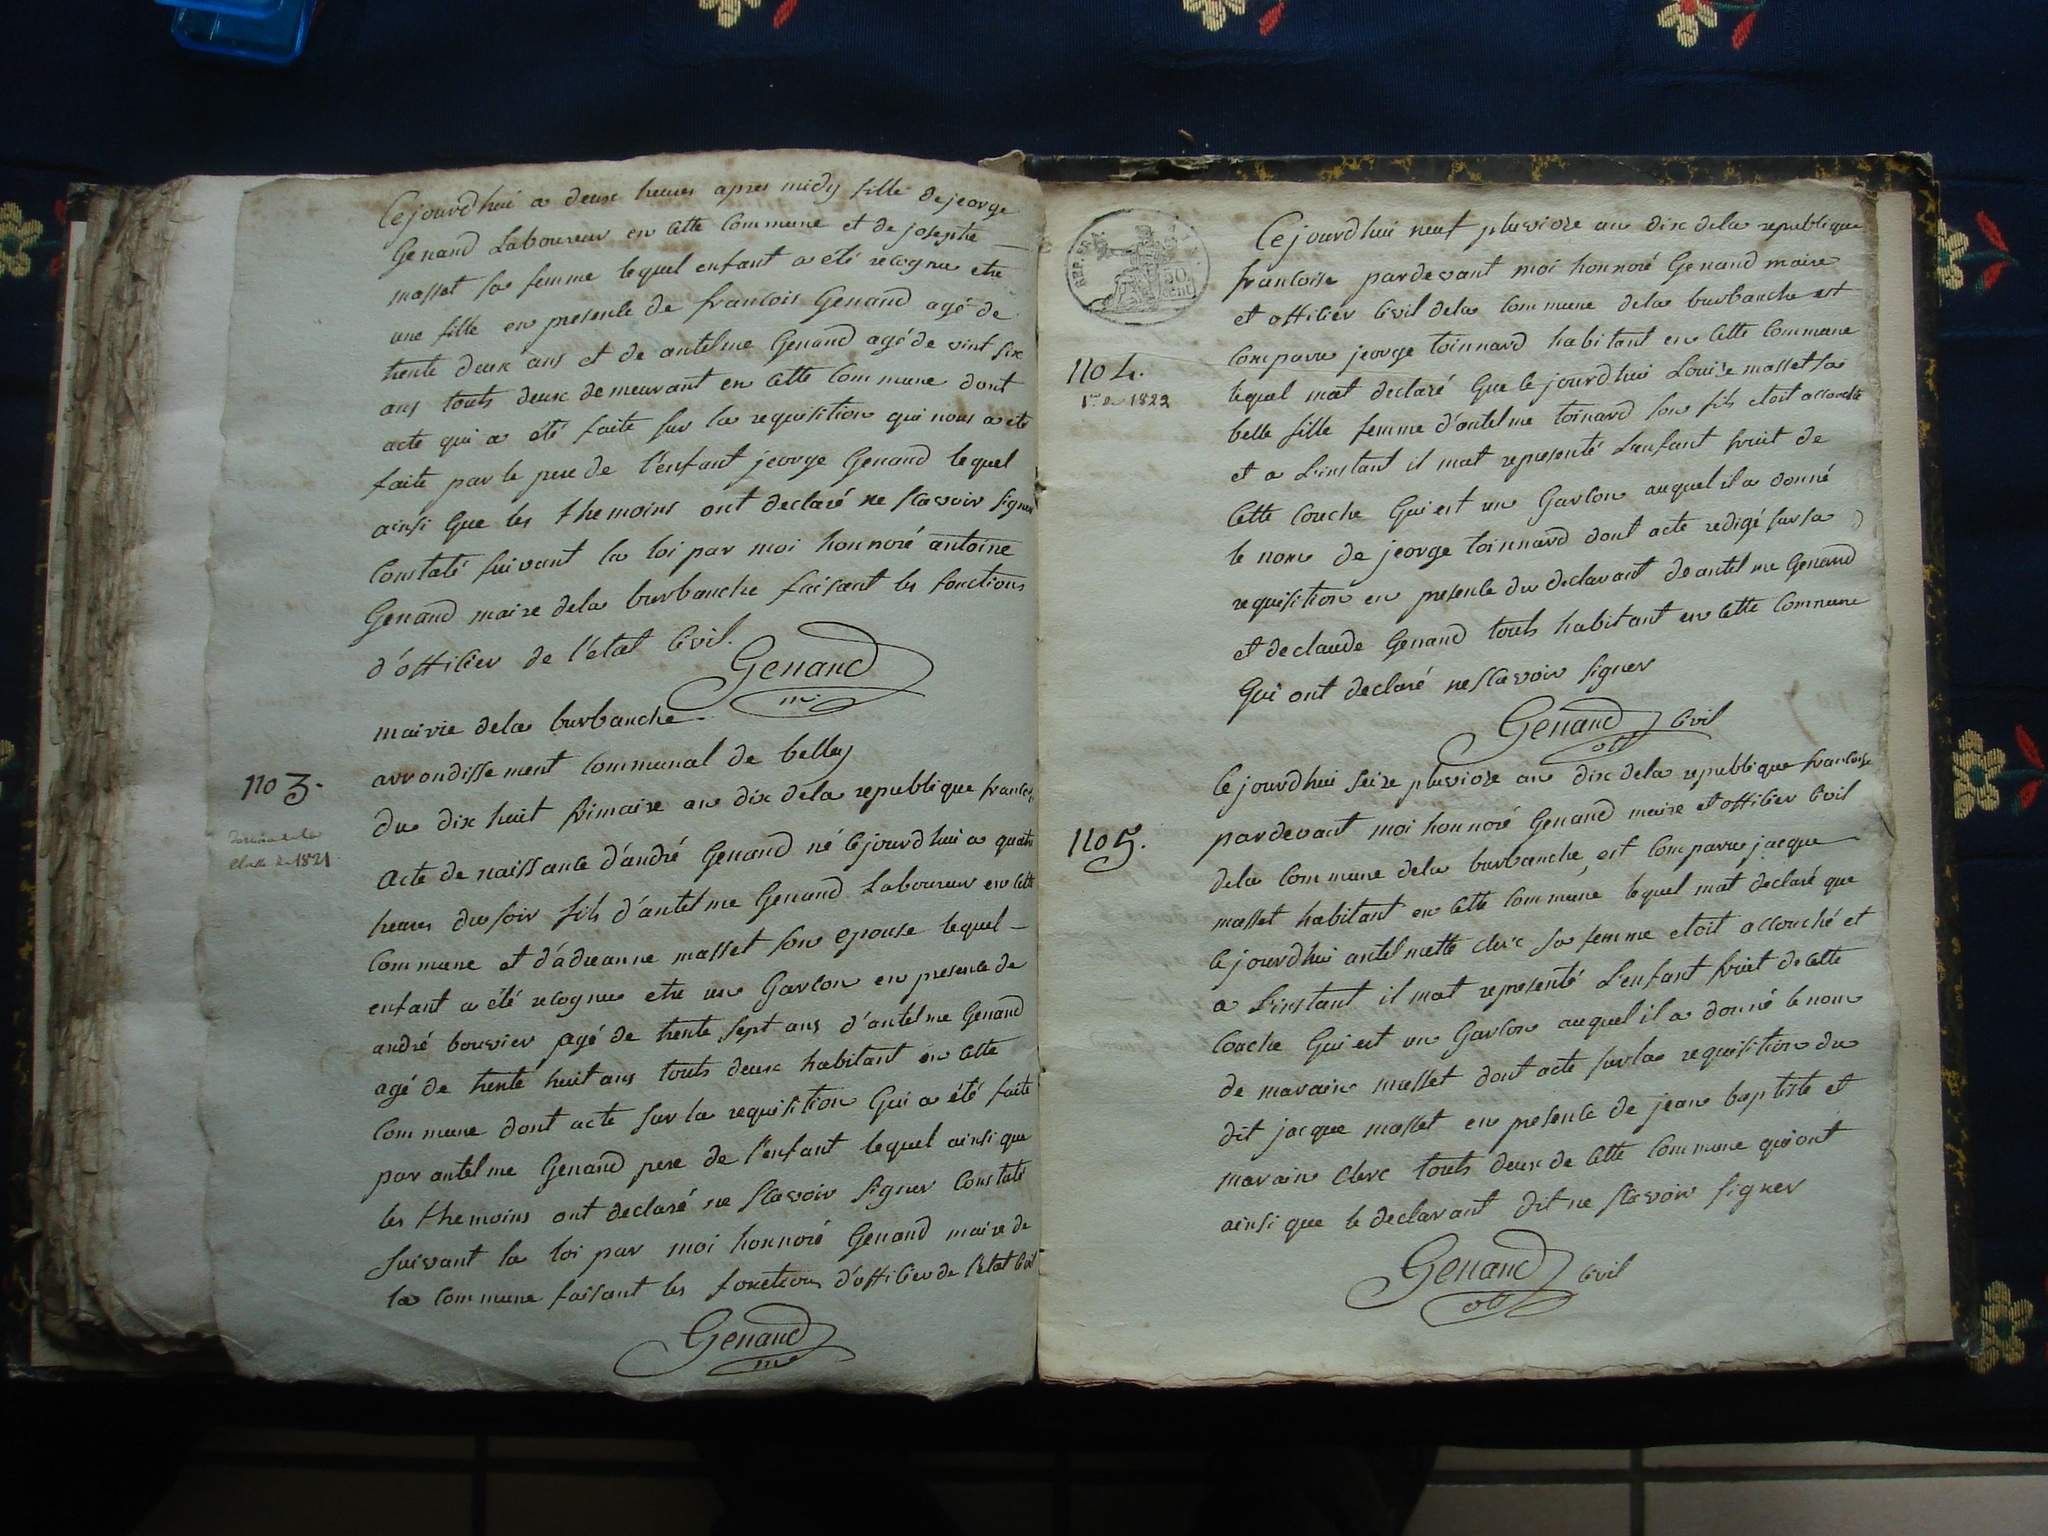 Cejourdhui a deux heures apres midy fille de jeorge
Genand Laboureur en cette Commune et de josephe
masset sa femme lequel enfant a été recognu etre
une fille en presence de francois Genand agé de
trente deux ans et de antelme Genand agé de vint six
ans touts deux demeurant en cette Commune dont
acte qui a été faite sur la requisition qui nous a été
faite par le pere de l'enfant jeorge Genand lequel
ainsi que les themoins ont declaré ne scavoir signer
Constaté suivant la loi par moi honnoré antoine
Genand maire dela burbanche faisant les fonctions
d'officier de l'etat Civil.
Genand
mairie dela burbanche
arrondissement Communal de belley
1103.
du dix huit frimaire an dix dela republique francoise
Classe de 1821
acte de naissance d'andré Genand né cejourdhui a quatre
heures du soir fils d'antelme Genand Laboureur en cette
Commune et d'adreanne masset son epouse lequel
enfant a été recognu etre un Garcon en presence de
andré bouvier agé de trente sept ans d'antelme Genand
agé de trente huit ans touts deux habitant en cette
Commune dont acte sur la requisition Qui a été faite
par antelme Genand pere de l'enfant lequel ainsi que
les themoins ont declaré ne scavoir signer Constaté
suivant la loi par moi honnoré Genand maire de
la Commune faisant les fonctions d'officier de l'etat Civil
Genand
REP. FRA.
50
cent
Cejourdhui neuf pluviose an dix dela republique
francoise pardevant moi honnoré Genand maire
et officier Civil dela Commune dela burbanche est
1104.
comparu jeorge toinnard habitant en cette Commune
de 1822
lequel mat declaré Que cejourdhui Louise masset sa
belle fille femme d'antelme toinard son fils etoit accouché
et a L'instant il mat representé L'enfant fruit de
Cette Couche Qui est un Garcon auquel il a donné
le nom de jeorge toinnard dont acte redigé sur sa
requisition en presence du declarant de antelme Genand
et declaude Genand touts habitant en cette Commune
Qui ont declaré ne scavoir signer
Genand Civil
Cejourdhui seize pluviose an dix dela republique francoise
1105.
pardevant moi honnoré Genand maire et officier Civil
dela Commune dela burbanche est Comparu jacque
masset habitant en cette Commune lequel mat declaré que
cejourdhui antelmette clerc sa femme etoit accouché et
a L'instant il mat representé L'enfant fruit de cette
Couche Qui est un Garcon auquel il a donné le nom
de marain masset dont acte sur la requisition du
dit jacque masset en presence de jean baptiste et
marain clerc touts deux de cette Commune qui ont
ainsi que le declarant dit ne scavoir signer
Genand Civil